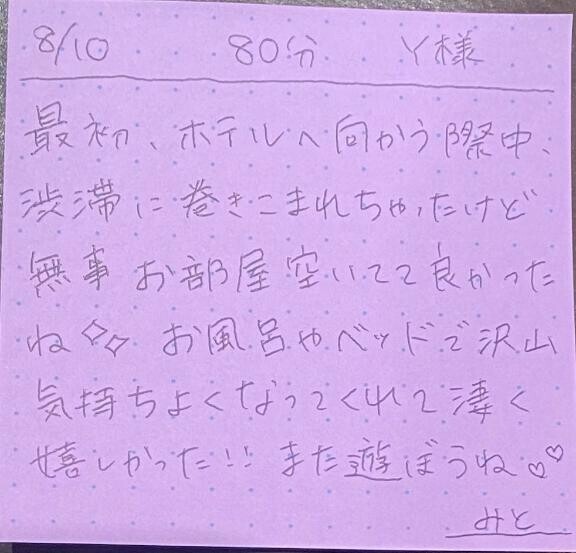 8/10 80分 Y様
最初、ホテルへ向かう際中、
渋滞に巻きこまれちゃったけど
無事お部屋空いてて良かった
ね✧✧ お風呂やベッドで沢山
気持ちよくなってくれて凄く
嬉しかった!! また遊ぼうね♡♡
みと